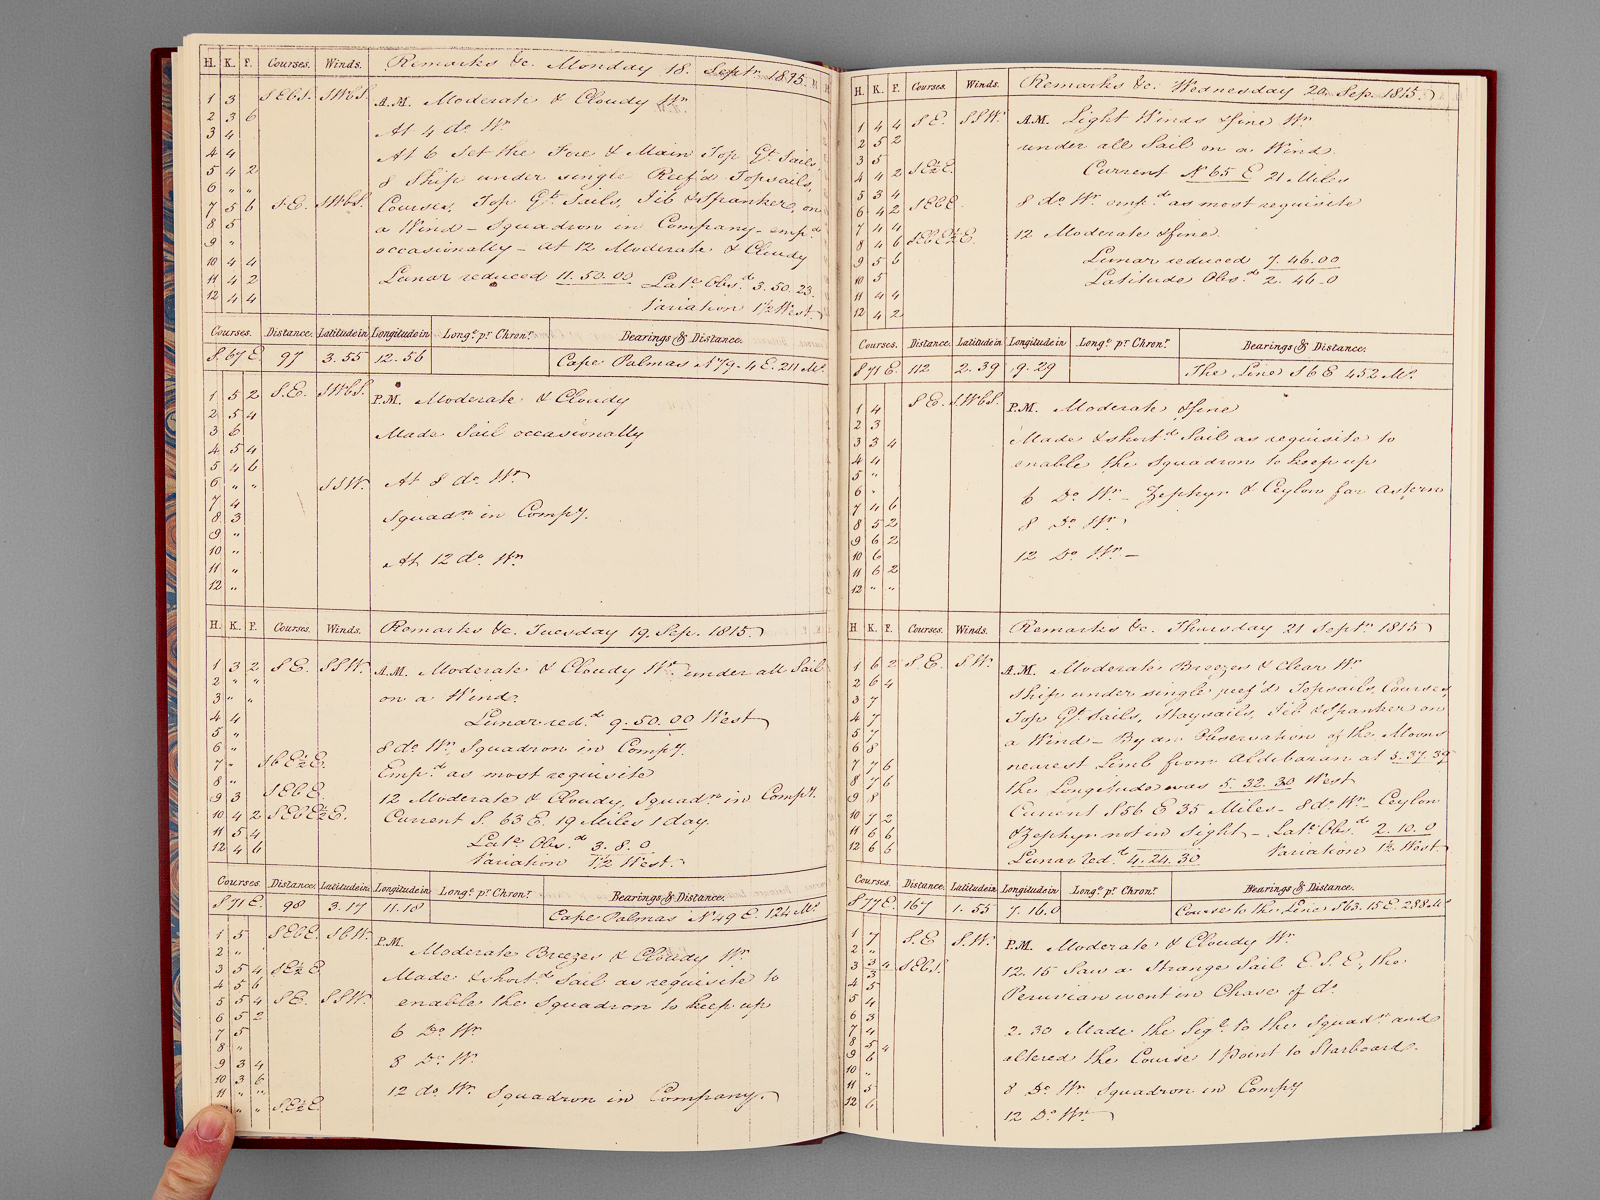 H. K. F. Courses. Winds. Remarks &c. Monday 18. Septr. 1815.
1 3 SEbS. SWbS. A.M. Moderate & Cloudy Wr
2 3 6
3 4 At 4 do. Wr
4 4 At 6 Set the Fore & Main Top Gt. Sails,
5 4 2 8 Ship under single Reef'd Topsails,
6 〃 〃
7 5 6 S.E. SWbS. Courses, Top Gt. Sails, Jib & Spanker, on
8 5 a Wind – Squadron in Company – emp.d
9 〃 occasionally – at 12 Moderate & Cloudy
10 4 4
11 4 2 Lunar reduced 11.50.00 Late. Obs.d 3.50.23.
12 4 4 Variation 1½ West.
Courses. Distance. Latitude in Longitude in Long.e pr. Chronr. Bearings & Distance.
S. 67 E. 97 3.55 12.56 Cape Palmas N 79.4 E. 211 Ms.
1 5 2 S.E. SWbS. P.M. Moderate & Cloudy
2 5 4
3 6 Made Sail occasionally
4 5 4
5 4 6
6 〃 〃 SSW. At 8 do. Wr
7 4
8 3 Squadn. in Compy.
9 〃
10 〃 At 12 do. Wr
11 〃
12 〃
H. K. F. Courses. Winds. Remarks &c. Tuesday 19. Sep. 1815.
1 3 2 S.E. SSW. A.M. Moderate & Cloudy Wr under all Sail
2 〃 〃
3 〃 〃 on a Wind.
4 4 Lunar red.d 9.50.00 West
5 〃
6 〃 8 do. Wr. Squadron in Compy.
7 〃 SbE½E.
8 〃 Emp.d as most requisite
9 3 SEbE. 12 Moderate & Cloudy, Squadn. in Compy.
10 4 2 SEbE½E. Current S. 63 E. 19 Miles 1 day.
11 5 4 Late. Obs.d 3.8.0
12 4 6 Variation 1½ West.
Courses. Distance. Latitude in Longitude in Long.e pr. Chronr. Bearings & Distance.
S 71 E. 98 3.17 11.18 Cape Palmas N 49 E. 124 Ms.
1 5 SEbE. SbW. P.M.
2 〃 Moderate Breezes & Cloudy Wr
3 5 4 SE½E
4 5 6 Made & short.d Sail as requisite to
5 5 4 SE. SSW. enable the Squadron to keep up
6 5 2
7 5 6 Do. Wr
8 〃
9 3 4 8 Do. Wr.
10 3 6
11 〃 〃 12 do. Wr. Squadron in Company.
〃 〃 SE½E
H. K. F. Courses. Winds. Remarks &c. Wednesday 20. Sep. 1815.
1 4 4 SE. SSW. A.M. Light Winds & fine Wr
2 5 2 under all Sail on a Wind.
3 5
4 4 2 SE½E. Current N 65 E 21 Miles
5 3 4
6 4 2 SEbE 8 do. Wr. emp.d as most requisite
7 4 4
8 4 6 SEbE½E. 12 Moderate & fine
9 5 6 Lunar reduced 7.46.00
10 5 Latitude Obs.d 2.46.0
11 4 4
12 4 2
Courses. Distance. Latitude in Longitude in Long.e pr. Chronr. Bearings & Distance.
S 71 E. 112 2.39 9.29 The Line S 6 E 452 Ms.
1 4 S.E. SWbS. P.M. Moderate & fine
2 3
3 3 4 Made & short.d Sail as requisite to
4 4 enable the Squadron to keep up
5 〃
6 〃 6 Do. Wr – Zephyr & Ceylon far Astern
7 4 6
8 5 2 8 Do. Wr
9 6 2
10 6 12 Do. Wr –
11 6 2
12 〃 〃
H. K. F. Courses. Winds. Remarks &c. Thursday 21 Septr. 1815
1 6 2 S.E. SW. A.M. Moderate Breezes & Clear Wr
2 6 4 Ship under single reef'd Topsails, Courses,
3 7
4 7 Top Gt. Sails, Staysails, Jib & Spanker on
5 7 a Wind – By an Observation of the Moons
6 8
7 7 6 nearest Limb from Aldebaran at 5.37.39
8 7 6 the Longitude was 5.32.30 West
9 8 Current S 56 E 35 Miles – 8 do. Wr – Ceylon
10 7 2
11 6 6 & Zephyr not in sight – Late. Obs.d 2.10.0
12 6 6 Lunar red.d 4.24.30 Variation 1½ West
Courses. Distance. Latitude in Longitude in Long.e pr. Chronr. Bearings & Distance.
S 77 E. 167 1.55 7.16.0 Course to the Line S 63.15 E. 288 Ms
1 7 S.E S.W. P.M. Moderate & Cloudy Wr.
2 〃
3 3 4 SEbS. 12.15 Saw a Strange Sail E.S.E., the
3
4 5 Peruvian went in Chase of do.
5 4
6 3 2.30 Made the Sigl. to the Squadn. and
7 4
8 5 4 altered the Course 1 Point to Starboard.
9 6
10 〃 8 Do. Wr Squadron in Compy
11 5
12 6 12 Do. Wr.